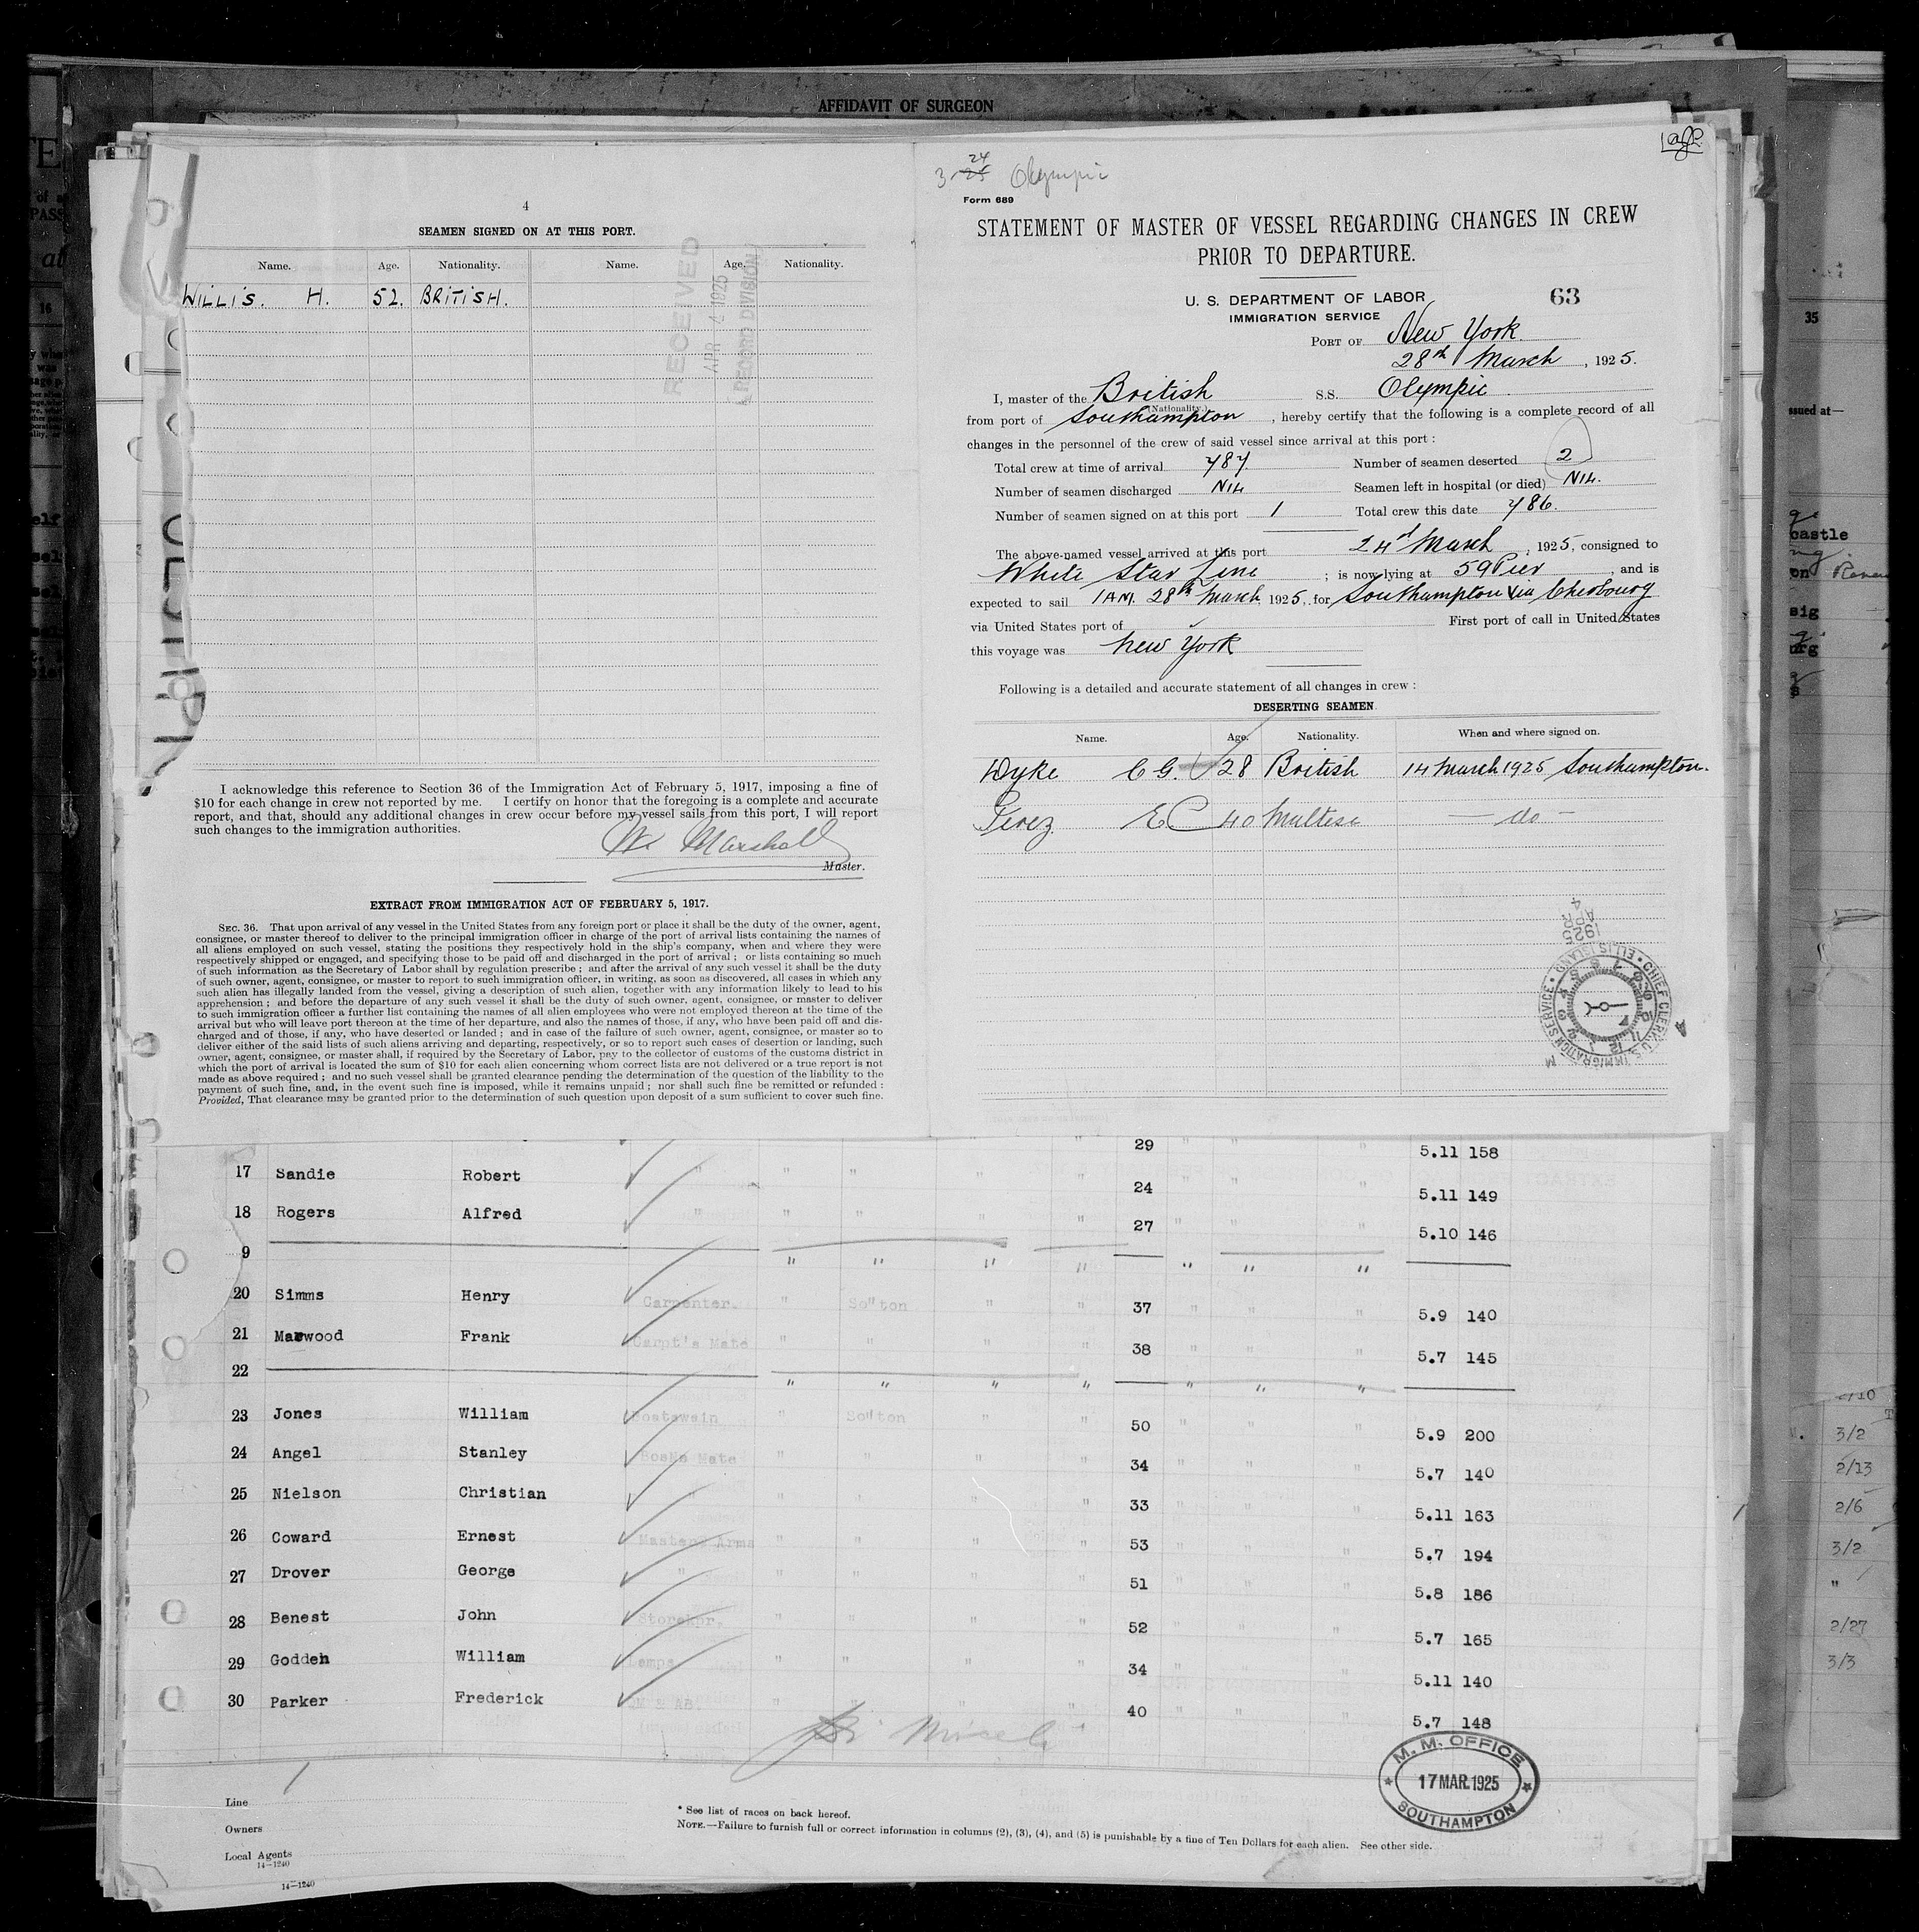 AFFIDAVIT OF SURGEON
4
SEAMEN SIGNED ON AT THIS PORT.
Name. Age. Nationality. Name. Age. Nationality.
WILLIS. H. 52. BRITISH.
RECEIVED
APR 4 1925
RECORD DIVISION
I acknowledge this reference to Section 36 of the Immigration Act of February 5, 1917, imposing a fine of
$10 for each change in crew not reported by me. I certify on honor that the foregoing is a complete and accurate
report, and that, should any additional changes in crew occur before my vessel sails from this port, I will report
such changes to the immigration authorities.
W. Marshall
Master.
EXTRACT FROM IMMIGRATION ACT OF FEBRUARY 5, 1917.
SEC. 36. That upon arrival of any vessel in the United States from any foreign port or place it shall be the duty of the owner, agent,
consignee, or master thereof to deliver to the principal immigration officer in charge of the port of arrival lists containing the names of
all aliens employed on such vessel, stating the positions they respectively hold in the ship's company, when and where they were
respectively shipped or engaged, and specifying those to be paid off and discharged in the port of arrival; or lists containing so much
of such information as the Secretary of Labor shall by regulation prescribe; and after the arrival of any such vessel it shall be the duty
of such owner, agent, consignee, or master to report to such immigration officer, in writing, as soon as discovered, all cases in which any
such alien has illegally landed from the vessel, giving a description of such alien, together with any information likely to lead to his
apprehension; and before the departure of any such vessel it shall be the duty of such owner, agent, consignee, or master to deliver
to such immigration officer a further list containing the names of all alien employees who were not employed thereon at the time of the
arrival but who will leave port thereon at the time of her departure, and also the names of those, if any, who have been paid off and dis-
charged and of those, if any, who have deserted or landed; and in case of the failure of such owner, agent, consignee, or master so to
deliver either of the said lists of such aliens arriving and departing, respectively, or so to report such cases of desertion or landing, such
owner, agent, consignee, or master shall, if required by the Secretary of Labor, pay to the collector of customs of the customs district in
which the port of arrival is located the sum of $10 for each alien concerning whom correct lists are not delivered or a true report is not
made as above required; and no such vessel shall be granted clearance pending the determination of the question of the liability to the
payment of such fine, and, in the event such fine is imposed, while it remains unpaid; nor shall such fine be remitted or refunded:
Provided, That clearance may be granted prior to the determination of such question upon deposit of a sum sufficient to cover such fine.
24
3-25 Olympic
Form 689
STATEMENT OF MASTER OF VESSEL REGARDING CHANGES IN CREW
PRIOR TO DEPARTURE.
U. S. DEPARTMENT OF LABOR
IMMIGRATION SERVICE
63
PORT OF New York.
28th March, 1925.
I, master of the British S.S. Olympic
(Nationality.)
from port of Southampton, hereby certify that the following is a complete record of all
changes in the personnel of the crew of said vessel since arrival at this port:
Total crew at time of arrival 787 Number of seamen deserted 2
Number of seamen discharged NIL Seamen left in hospital (or died) NIL.
Number of seamen signed on at this port 1 Total crew this date 786.
The above-named vessel arrived at this port 24th March, 1925, consigned to
White Star Line; is now lying at 59 Pier, and is
expected to sail 1 AM. 28th March 1925, for Southampton via Cherbourg
via United States port of First port of call in United States
this voyage was New York
Following is a detailed and accurate statement of all changes in crew:
DESERTING SEAMEN
Name. Age. Nationality. When and where signed on.
Dyke C G. 28 British 14 March 1925 Southampton.
Perez E C 40 Maltese — do —
1925 APR 4
CHIEF CLERK U.S. IMMIGRATION SERVICE • ELLIS ISLAND •
29 " " " 5.11 158
17 Sandie Robert " " " " 24 " " " 5.11 149
18 Rogers Alfred " " " " " 27 " " " 5.10 146
9 " " " " " " "
20 Simms Henry Carpenter. " So"ton " " 37 " " " 5.9 140
21 Marwood Frank Carpt's Mate " " " " 38 " " " 5.7 145
22 " " " " " " "
23 Jones William Boatswain " So"ton " " 50 " " " 5.9 200
24 Angel Stanley Bosns Mate " " " " 34 " " " 5.7 140
25 Nielson Christian " " " " " 33 " " " 5.11 163
26 Coward Ernest Masters Arms " " " " 53 " " " 5.7 194
27 Drover George " " " " " 51 " " " 5.8 186
28 Benest John Storekpr. " " " " 52 " " " 5.7 165
29 Godden William Lamps " " " " 34 " " " 5.11 140
30 Parker Frederick QM & AB. " " " " 40 " " " 5.7 148
M. M. OFFICE
17 MAR. 1925
SOUTHAMPTON
Line
Owners
Local Agents
14—1240
14—1240
* See list of races on back hereof.
NOTE.—Failure to furnish full or correct information in columns (2), (3), (4), and (5) is punishable by a fine of Ten Dollars for each alien. See other side.
16
35
ssued at—
castle
sig
3/2
2/13
2/6
3/2
"
2/27
3/3